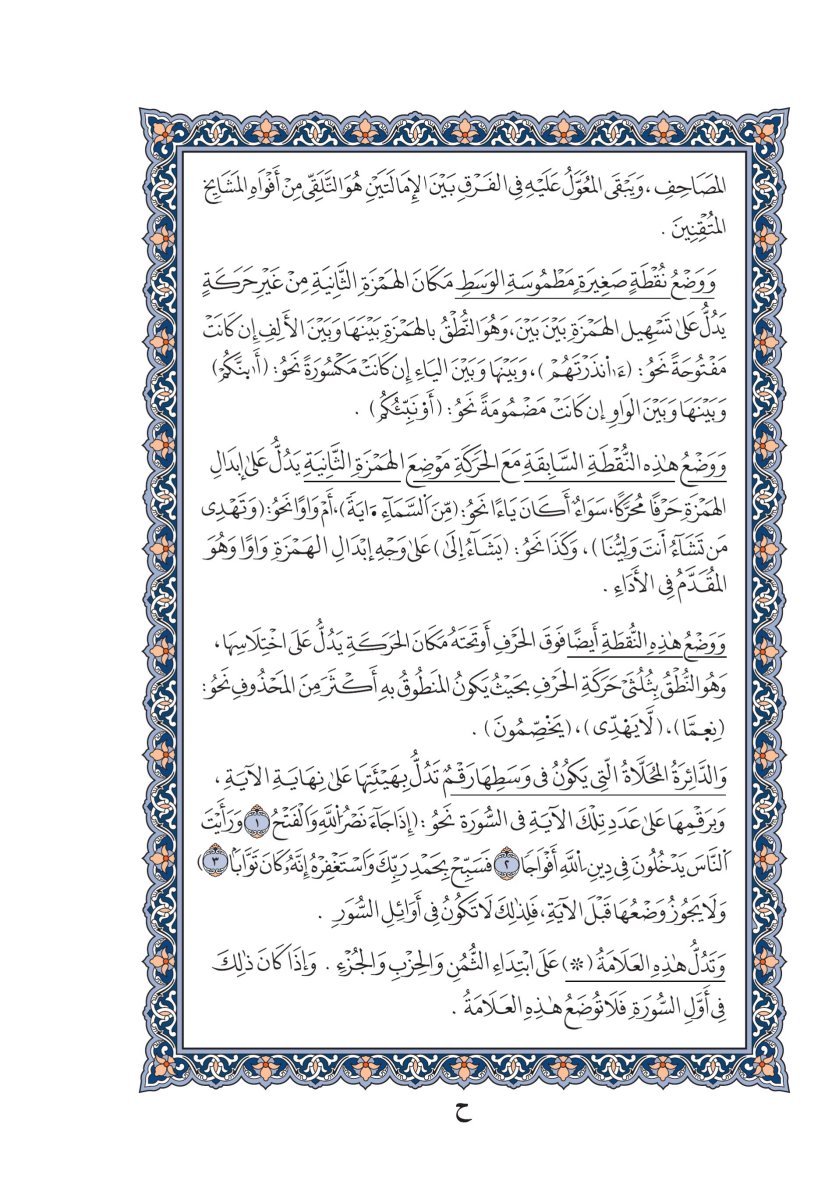 المَصَاحِفِ، وَيَبْقَى المُعَوَّلُ عَلَيْهِ فِى الفَرْقِ بَيْنَ الإِمَالَتَيْنِ هُوَ التَّلَقِّى مِنْ أَفْوَاهِ المَشَايِخِ
المُتْقِنِينَ .
وَوَضْعُ نُقْطَةٍ صَغِيرَةٍ مَطْمُوسَةِ الوَسَطِ مَكَانَ الهَمْزَةِ الثَّانِيَةِ مِنْ غَيْرِ حَرَكَةٍ
يَدُلُّ عَلىٰ تَسْهِيلِ الهَمْزَةِ بَيْنَ بَيْنَ، وَهُوَ النُّطْقُ بِالهَمْزَةِ بَيْنَهَا وَبَيْنَ الأَلِفِ إِن كَانَتْ
مَفْتُوحَةً نَحْوُ: (ءَا۬نذَرْتَهُمْ)، وَبَيْنَهَا وَبَيْنَ اليَاءِ إِن كَانَتْ مَكْسُورَةً نَحْوُ: (أَى۪نَّكُمْ)
وَبَيْنَهَا وَبَيْنَ الوَاوِ إِن كَانَتْ مَضْمُومَةً نَحْوُ: (أَو۬نَبِّئُكُمْ) .
وَوَضْعُ هٰذِهِ النُّقْطَةِ السَّابِقَةِ مَعَ الحَرَكَةِ مَوْضِعَ الهَمْزَةِ الثَّانِيَةِ يَدُلُّ عَلىٰ إِبدَالِ
الهَمْزَةِ حَرْفًا مُحَرَّكًا، سَوَاءٌ أَكَانَ يَاءًا نَحْوُ: (مِّنَ اَ۬لسَّمَآءِ ءَايَةً)، أَمْ وَاوًا نَحْوُ: (وَتَهْدِى
مَن تَشَآءُ أَنتَ وَلِيُّنَا)، وَكَذَا نَحْوُ: (يَشَآءُ إِلَىٰ) عَلىٰ وَجْهِ إِبْدَالِ الهَمْزَةِ وَاوًا وَهُوَ
المُقَدَّمُ فِى الأَدَاءِ .
وَوَضْعُ هٰذِهِ النُّقطَةِ أَيضًا فَوقَ الحَرْفِ أَو تَحتَهُ مَكَانَ الحَرَكَةِ يَدُلُّ عَلَى اخْتِلَاسِهَا،
وَهُو النُّطْقُ بِثُلُثَىْ حَرَكَةِ الحَرْفِ بِحَيْثُ يَكُونُ المَنطُوقُ بِهِ أَكْثَرَ مِنَ المَحْذُوفِ نَحْوُ:
(نِعِمَّا)، (لَّا يَهْدِّى)، (يَخْصِّمُونَ) .
وَالدَّائِرَةُ المُحَلَّاةُ الَّتِى يَكُونُ فِى وَسَطِهَا رَقْمٌ تَدُلُّ بِهَيْئَتِهَا عَلىٰ نِهَايَةِ الآيَةِ،
وَبِرَقْمِهَا عَلىٰ عَدَدِ تِلْكَ الآيَةِ فِى السُّورَةِ نَحْوُ: (إِذَا جَآءَ نَصْرُ اُ۬للَّهِ وَالْفَتْحُ ١ وَرَأَيْتَ
اَ۬لنَّاسَ يَدْخُلُونَ فِى دِينِ اِ۬للَّهِ أَفْوَاجًا ٢ فَسَبِّحْ بِحَمْدِ رَبِّكَ وَاسْتَغْفِرْهُ إِنَّهُۥ كَانَ تَوَّابًا ٣)
وَلَا يَجُوزُ وَضْعُهَا قَبْلَ الآيَةِ، فَلِذٰلِكَ لَا تَكُونُ فِى أَوَائِلِ السُّوَرِ .
وَتَدُلُّ هٰذِهِ العَلَامَةُ (۞) عَلَى ابْتِدَاءِ الثُّمُنِ وَالحِزْبِ وَالجُزْءِ . وَإِذَا كَانَ ذٰلِكَ
فِى أَوَّلِ السُّورَةِ فَلَا تُوضَعُ هٰذِهِ العَلَامَةُ .
ح